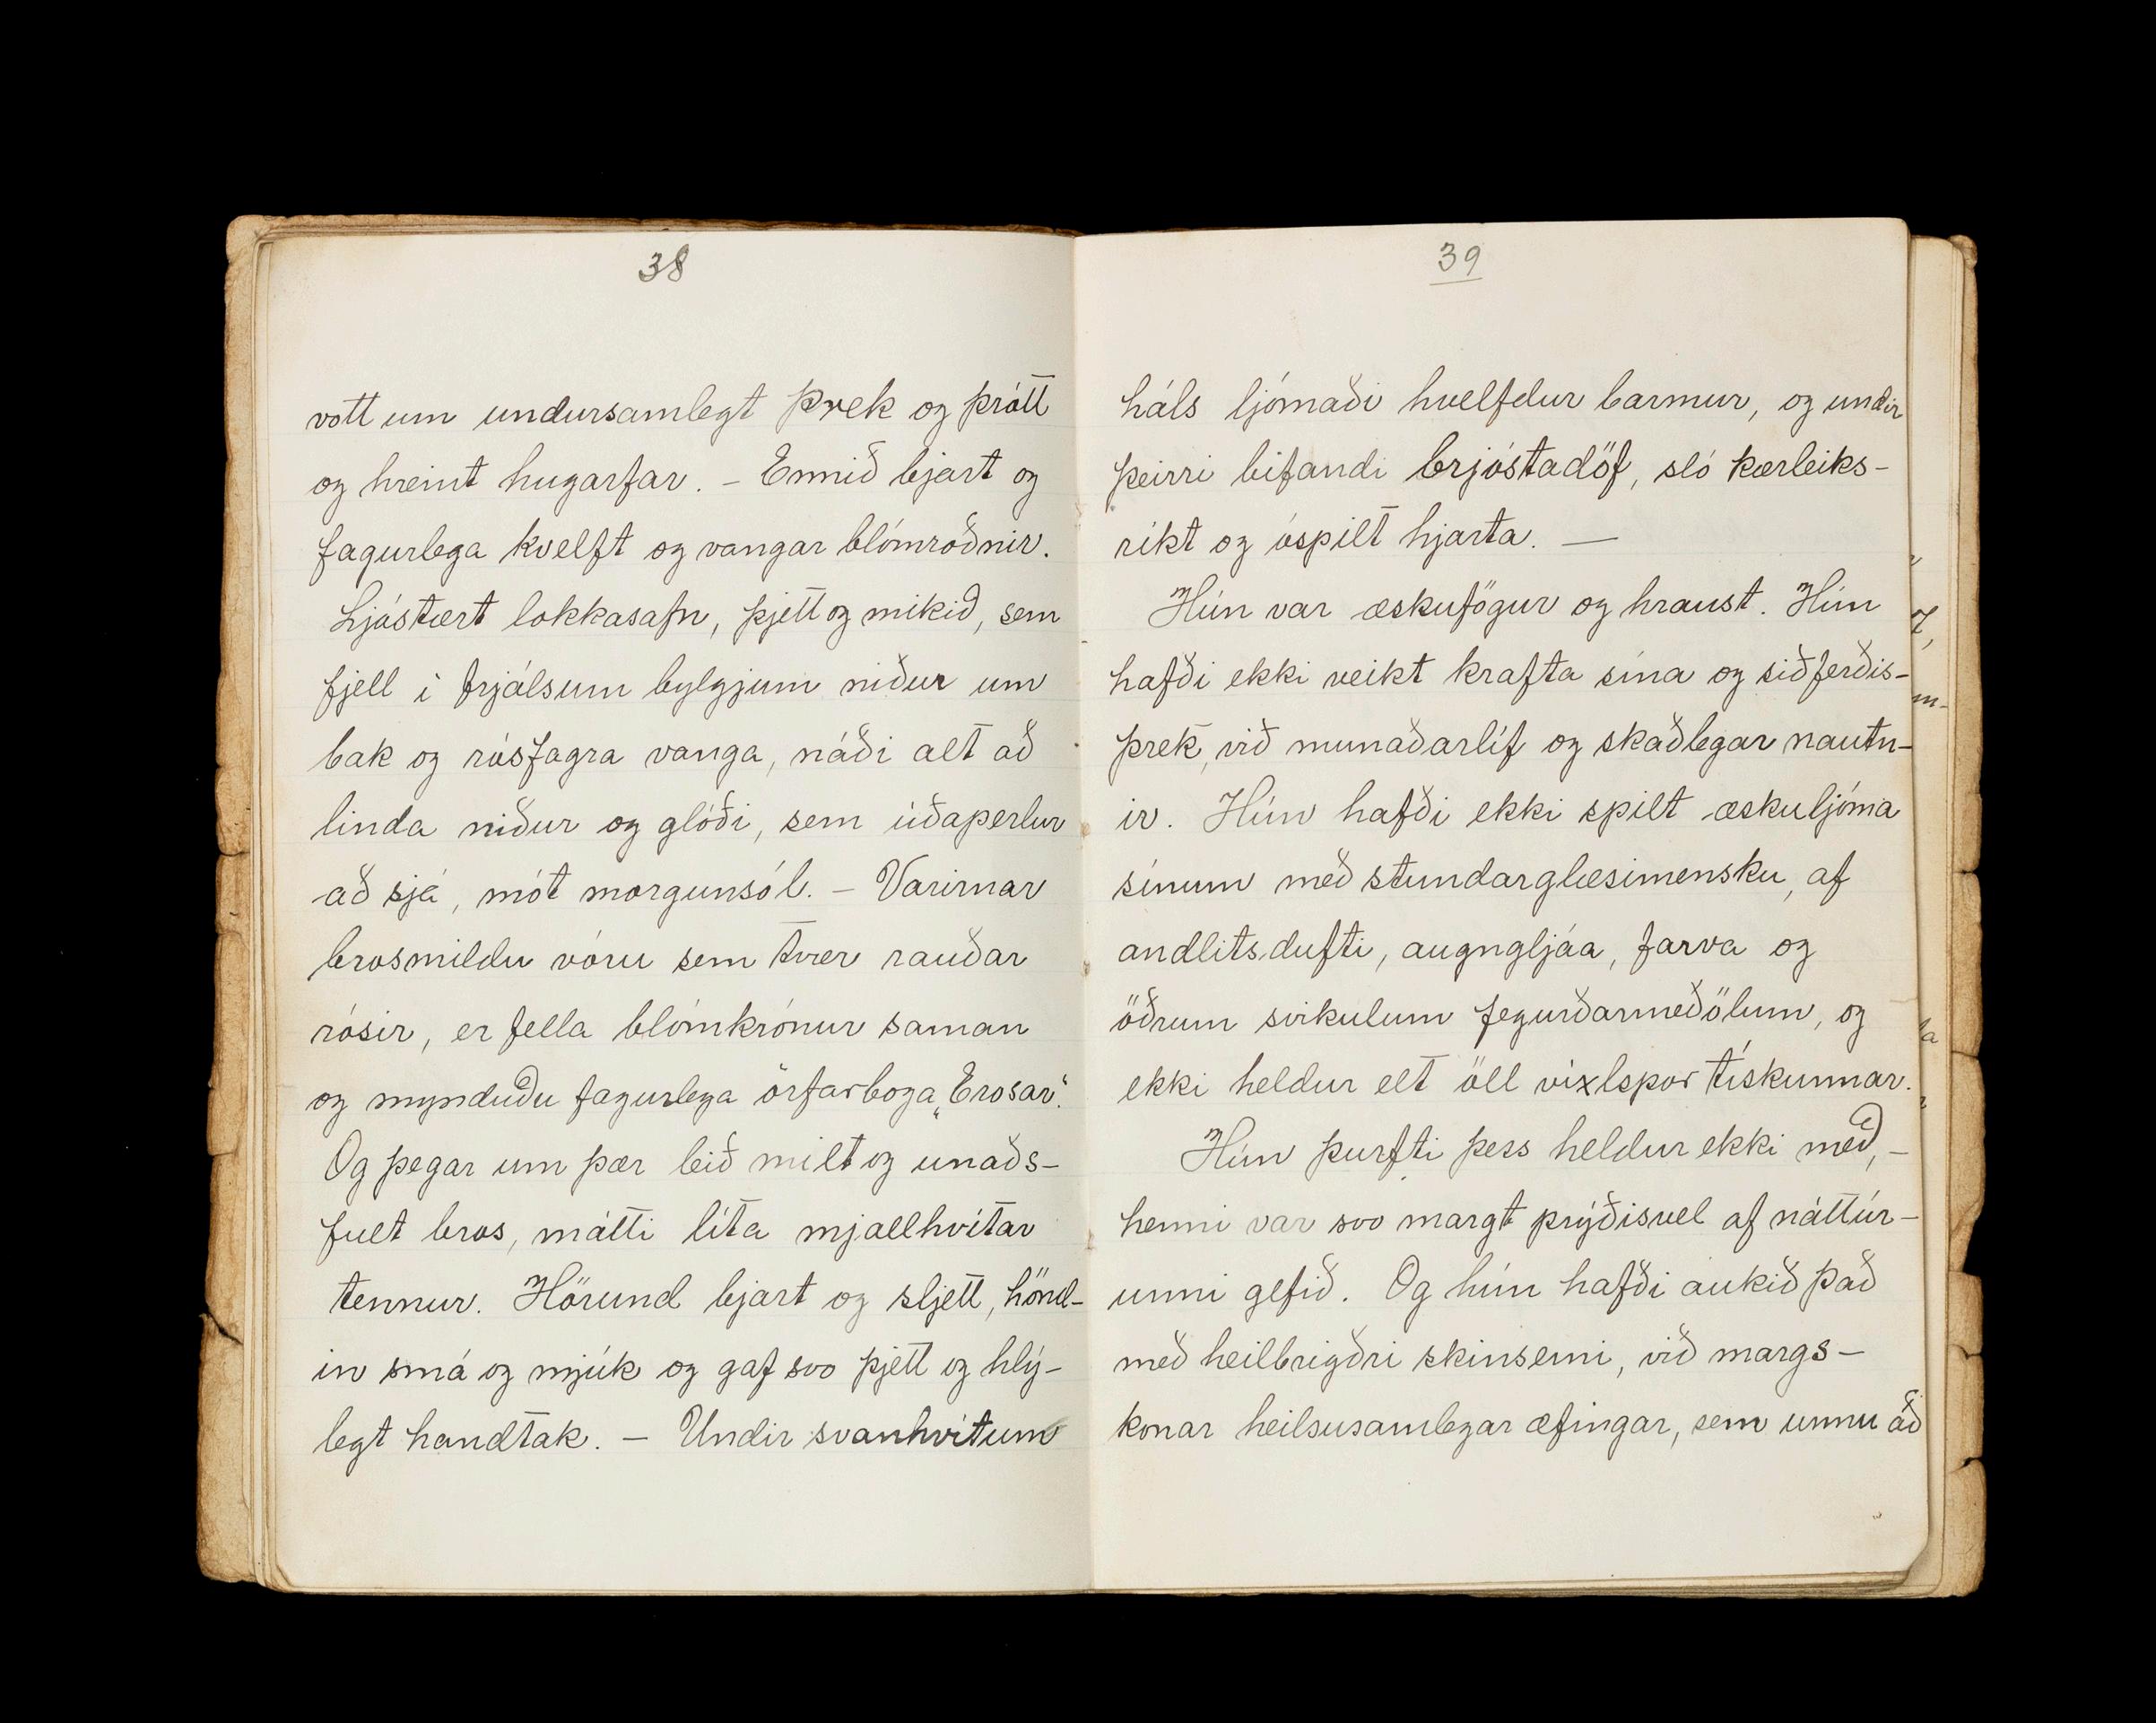 38
vott um undursamlegt þrek og þrótt
og hreint hugarfar. – Ennið bjart og
fagurlega kvelft og vangar blómroðnir.
Ljóstært lokkasafn, þjett og mikið, sem
fjell í frjálsum bylgjum niður um
bak og rósfagra vanga, náði alt að
linda niður og glóði, sem úðaperlur
að sjá, mót morgunsól. – Varirnar
brosmildu vóru sem tvær rauðar
rósir, er fella blómkrónur saman
og mynduðu fagurlega örfarboga „Erosar“.
Og þegar um þær leið milt og unaðs-
fult bros, mátti líta mjallhvítar
tennur. Hörund bjart og sljett, hönd-
in smá og mjúk og gaf svo þjett og hlý-
legt handtak. – Undir svanhvítum
39
háls ljómaði hvelfdur barmur, og undir
þeirri bifandi brjóstadöf, sló kærleiks-
ríkt og óspilt hjarta. —
Hún var æskufögur og hraust. Hún
hafði ekki veikt krafta sína og siðferðis-
þrek, við munaðarlíf og skaðlegar nautn-
ir. Hún hafði ekki spilt æskuljóma
sínum með stundarglæsimensku, af
andlitsdufti, augngljáa, farva og
öðrum svikulum fegurðarmeðölum, og
ekki heldur elt öll víxlspor tískunnar.
Hún þurfti þess heldur ekki með, –
henni var svo margt prýðisvel af náttúr-
unni gefið. Og hún hafði aukið það
með heilbrigðri skinsemi, við margs-
konar heilsusamlegar æfingar, sem unnu að